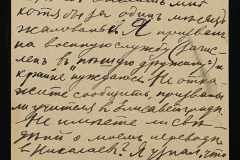 хотя бы за один месяц
жалованья. Я призван
на военную службу (зачис-
лен в "пешую дружину) и
крайне нуждаюсь. Не отка-
жите сообщить, призваны
ли учителя в Елисаветграде.
Не имеете ли све-
дений о моем переводе
в Николаев? Я узнал, что